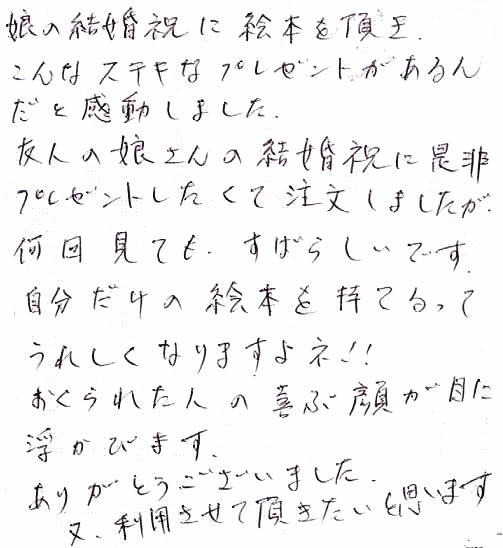 娘の結婚祝に絵本を頂き.
こんなステキなプレゼントがあるん
だと感動しました.
友人の娘さんの結婚祝に是非
プレゼントしたくて注文しましたが.
何回見ても.すばらしいです.
自分だけの絵本を持てるって
うれしくなりますよネ!!
おくられた人の喜ぶ顔が目に
浮かびます.
ありがとうございました.
又、利用させて頂きたいと思います